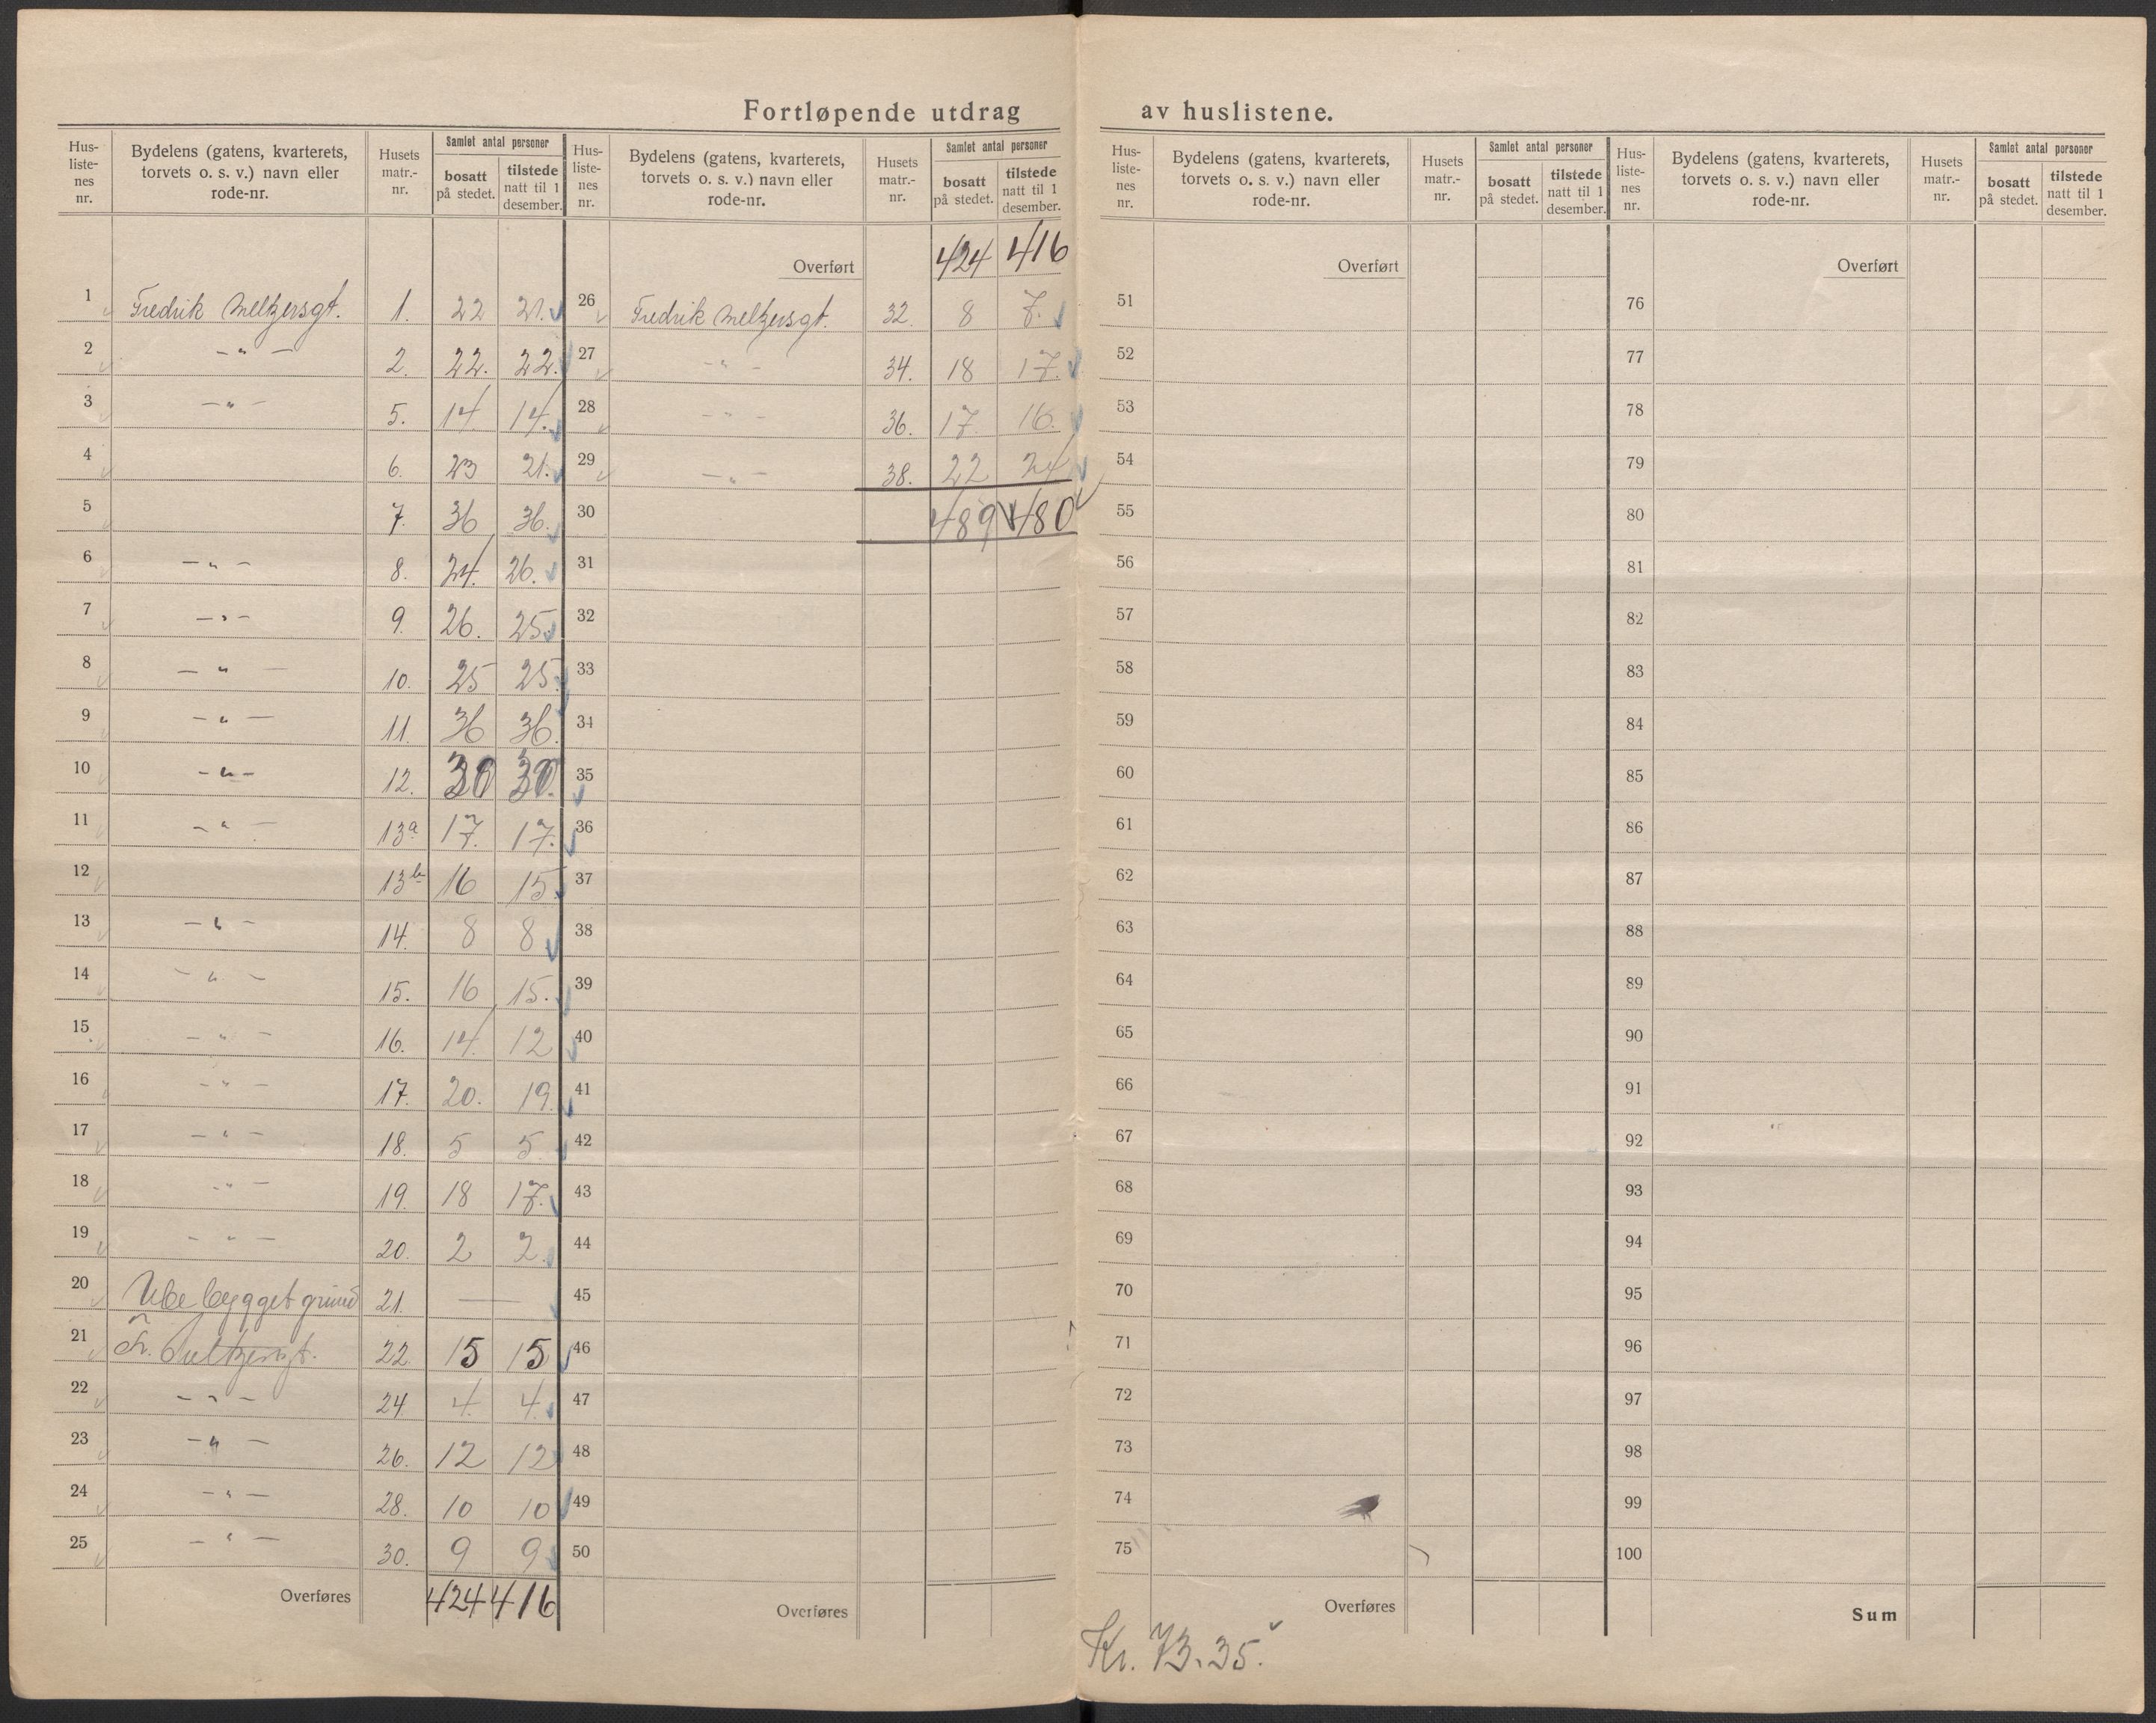 Fortløpende utdrag av huslistene.
Hus-liste-nes nr. | Bydelens (gatens, kvarterets, torvets o. s. v.) navn eller rode-nr. | Husets matr.-nr. | Samlet antal personer | bosatt på stedet. | tilstede natt til 1 desember.
1 Fredrik Meltzersgt. 1. 22 21.
2 -"- 2. 22. 22.
3 -"- 5. 14 14.
4 6. 23 21.
5 7. 36 36.
6 -"- 8. 24. 26.
7 -"- 9. 26. 25.
8 -"- 10. 25 25.
9 -"- 11. 36 36.
10 -"- 12. 30 30.
11 -"- 13a 17. 17.
12 13b 16 15
13 -"- 14. 8 8
14 -"- 15. 16 15.
15 -"- 16. 14. 12
16 -"- 17. 20. 19.
17 -"- 18. 5 5.
18 -"- 19. 18 17.
19 -"- 20. 2 2.
20 Ubebygget grund 21. —
21 Fr. Meltzersgt. 22. 15 15
22 -"- 24 4. 4.
23 -"- 26. 12 12
24 -"- 28. 10 10
25 -"- 30. 9 9
Overføres 424 416
Hus-liste-nes nr. | Bydelens (gatens, kvarterets, torvets o. s. v.) navn eller rode-nr. | Husets matr.-nr. | Samlet antal personer | bosatt på stedet. | tilstede natt til 1 desember.
Overført 424 416
26 Fredrik Meltzersgt. 32. 8 7.
27 -"- 34. 18 17.
28 -"- 36. 17. 16.
29 -"- 38. 22 24
30 489 480
31
32
33
34
35
36
37
38
39
40
41
42
43
44
45
46
47
48
49
50
Overføres
Hus-liste-nes nr. | Bydelens (gatens, kvarterets, torvets o. s. v.) navn eller rode-nr. | Husets matr.-nr. | Samlet antal personer | bosatt på stedet. | tilstede natt til 1 desember.
Overført
51
52
53
54
55
56
57
58
59
60
61
62
63
64
65
66
67
68
69
70
71
72
73
74
75
Overføres
Kr. 73.35.
Hus-liste-nes nr. | Bydelens (gatens, kvarterets, torvets o. s. v.) navn eller rode-nr. | Husets matr.-nr. | Samlet antal personer | bosatt på stedet. | tilstede natt til 1 desember.
Overført
76
77
78
79
80
81
82
83
84
85
86
87
88
89
90
91
92
93
94
95
96
97
98
99
100
Sum